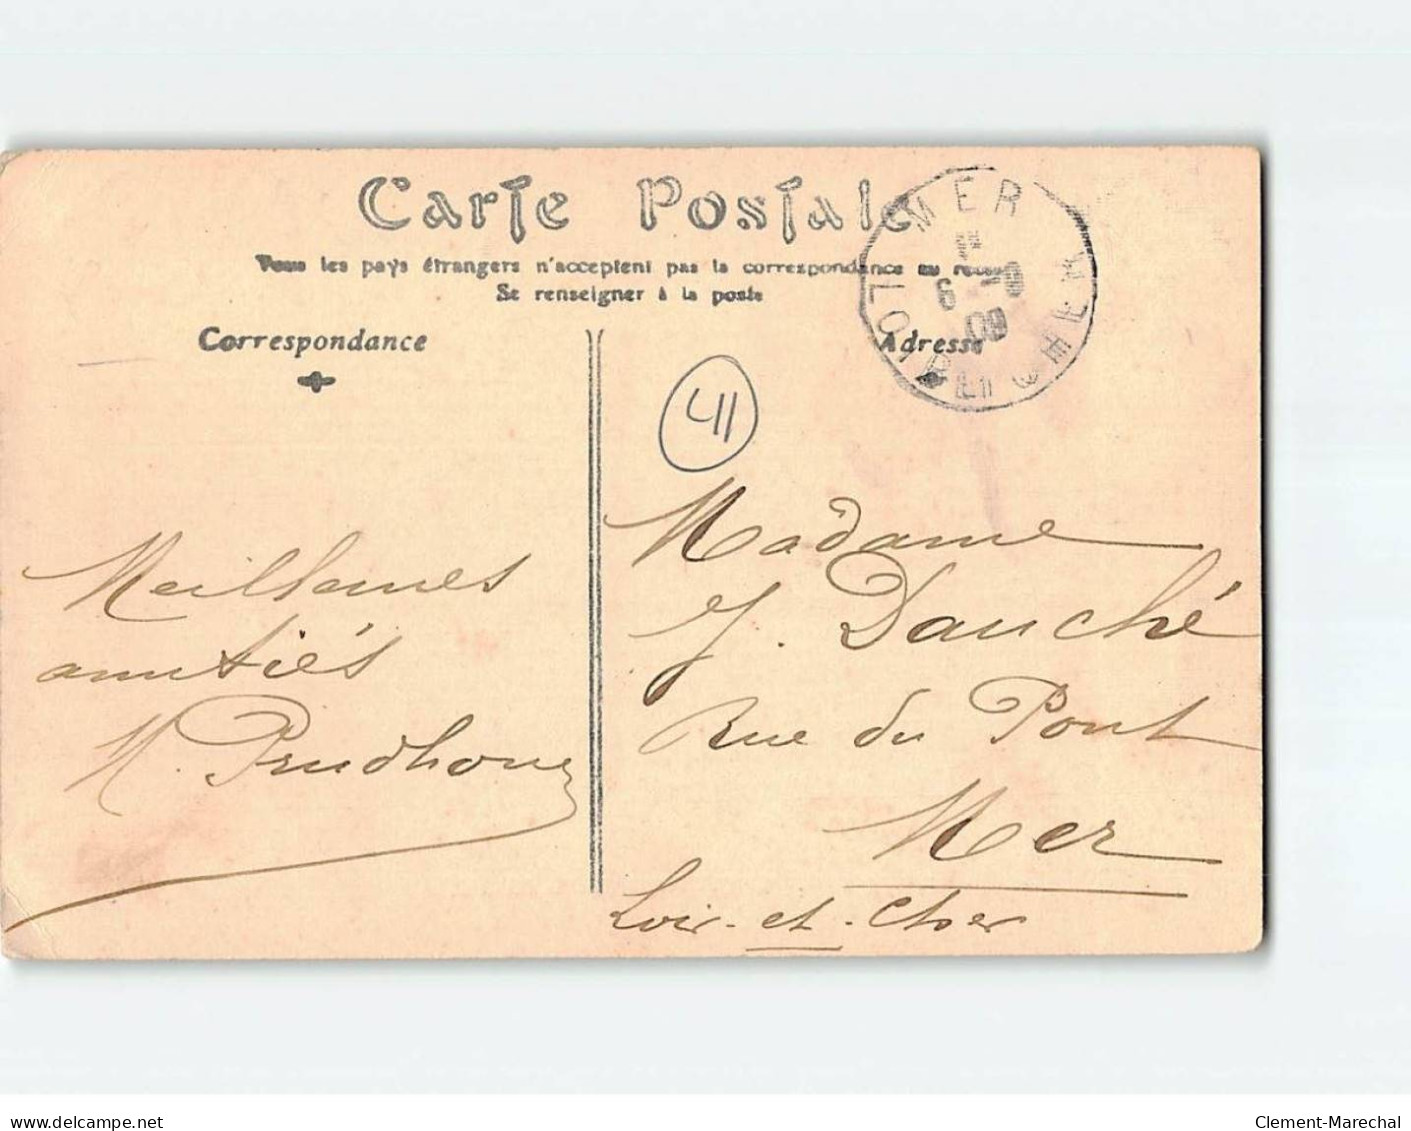 Carte Postale
Tous les pays étrangers n'acceptent pas la correspondance au recto
Se renseigner à la poste
Correspondance
Adresse
MER
6 - 9
09
LOIR ET CHER
41
Meilleures
amitiés
M. Prudhom
Madame
J. Dauché
Rue du Pont
Mer
Loir-et-Cher
www.delcampe.net
Clement-Marechal